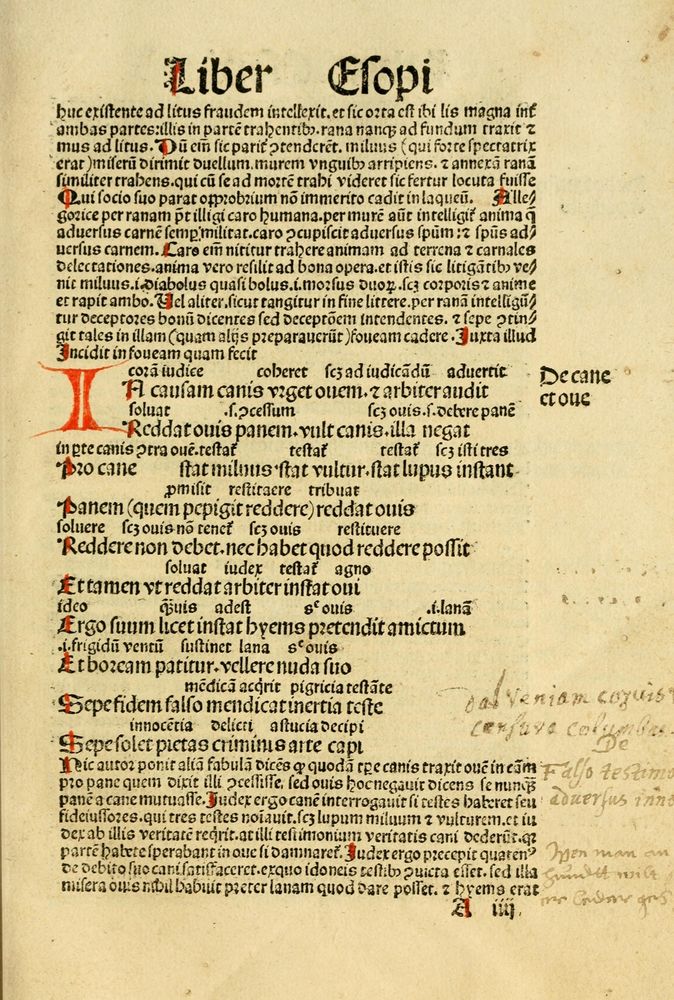 Liber Esopi
huc existente ad litus fraudem intellexit. et sic orta est ibi lis magna int̄
ambas partes: illis in partē trahentibꝫ. rana nanqꝫ ad fundum traxit ⁊
mus ad litus. Dū em̄ sic parit̉ ꝯtenderēt. miluus (qui forte spectatrix
erat) miserū dirimit duellum. murem vnguibꝫ arripiens. ⁊ annexā ranā
similiter trahens. qui cū se ad mortē trahi videret sic fertur locuta fuisse
Qui socio suo parat opprobrium nō immerito cadit in laqueū. Alle⸗
gorice per ranam pōt illigi caro humana. per murē aūt intelligit̉ anima q̄
aduersus carnē semꝑ militat. caro ꝯcupiscit aduersus spūm: ⁊ spūs ad⸗
uersus carnem. Caro em̄ nititur trahere animam ad terrena ⁊ carnales
delectationes. anima vero resilit ad bona opera. et istis sic litigātibꝫ ve⸗
nit miluus. i. diabolus quasi bolus. i. morsus duoꝝ. scꝫ corporis ⁊ anime
et rapit ambo. Vel aliter. sicut tangitur in fine littere. per ranā intelligū⸗
tur deceptores bonū dicentes sed deceptōem intendentes. ⁊ sepe ꝯtin⸗
git tales in illam (quam alijs preparauerūt) foueam cadere. Juxta illud
Incidit in foueam quam fecit
corā iudice coheret scꝫ ad iudicādū aduertit
IN causam canis vrget ouem. ⁊ arbiter audit
De cane
et oue
soluat .s. ꝓcessum scꝫ ouis. s. debere panē
Reddat ouis panem. vult canis. illa negat
in ꝑte canis ꝯtra ouē. testat̉ testat̉ testat̉ scꝫ isti tres
Pro cane stat miluus. stat vultur. stat lupus instant
ꝓmisit restituere tribuat
Panem (quem pepigit reddere) reddat ouis
soluere scꝫ ouis nō tenet̉ scꝫ ouis restituere
Reddere non debet. nec habet quod reddere possit
soluat iudex testat̉ agno
Et tamen vt reddat arbiter instat oui
ideo q̄uis adest sꝫ ouis .i. lanā
Ergo suum licet instat hyems pretendit amictum
.i. frigidū ventū sustinet lana sꝫ ouis
Et boream patitur. vellere nuda suo
mēdicā acq̄rit pigricia testāte
Sepe fidem falso mendicat inertia teste
innocētia delicti astucia decipi
Sepe solet pietas criminis arte capi
Hic autor ponit aliā fabulā dicēs ꝙ quodā tꝑe canis traxit ouē in cām
pro pane quem dixit illi ꝯcessisse. sed ouis hoc negauit dicens se nunqꝫ
panē a cane mutuasse. Judex ergo canē interrogauit si testes haberet seu
fideiussores. qui tres testes noīauit. scꝫ lupum miluum ⁊ vulturem. et iu
dex ab illis veritatē req̄rit. at illi testimonium veritatis cani dederūt. qꝛ
partē habere sperabant in oue si damnaret̉. Judex ergo precepit quaten⁹
de debito suo cani satisfaceret. ex quo idoneis testibꝫ ꝯuicta esset. sed illa
misera ouis nihil habuit preter lanam quod dare posset. ⁊ hyems erat
A iiij
dat veniam coruis
censura columbas
De
Falso testimo
adversus inno
Wen man an
hundtt will